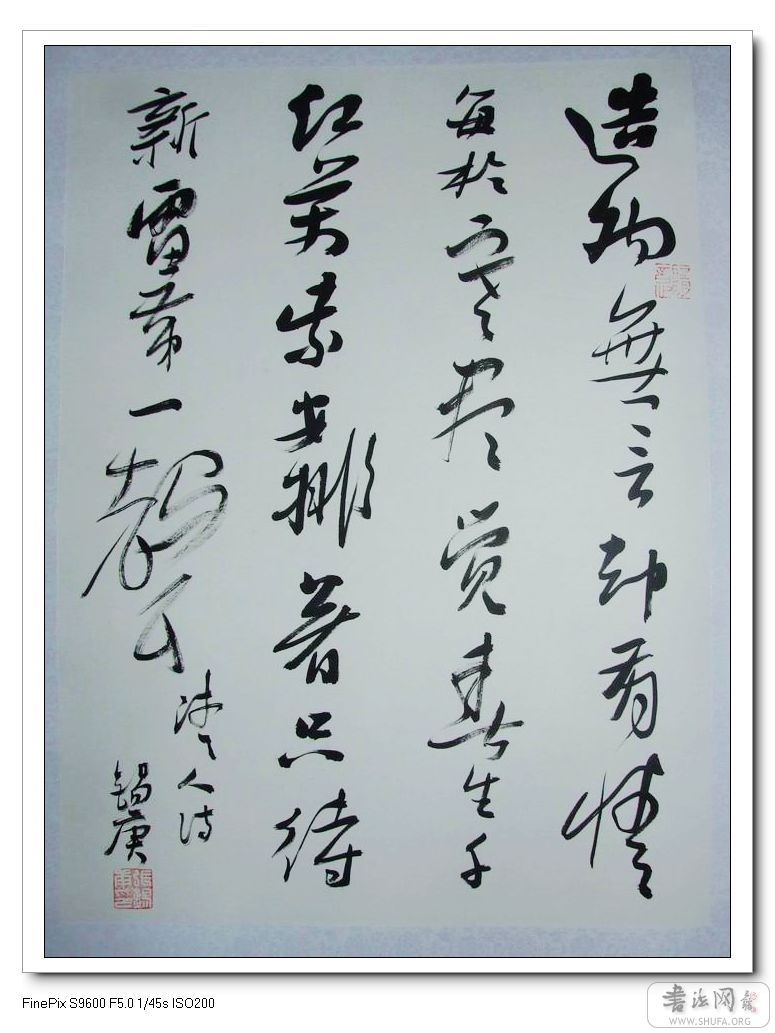 造物無言却有情
每於寒尽觉春生千
红萬紫安排著只待
新雷第一聲
清人诗
錫庚
FinePix S9600 F5.0 1/45s ISO200
書法网
WWW.SHUFA.ORG